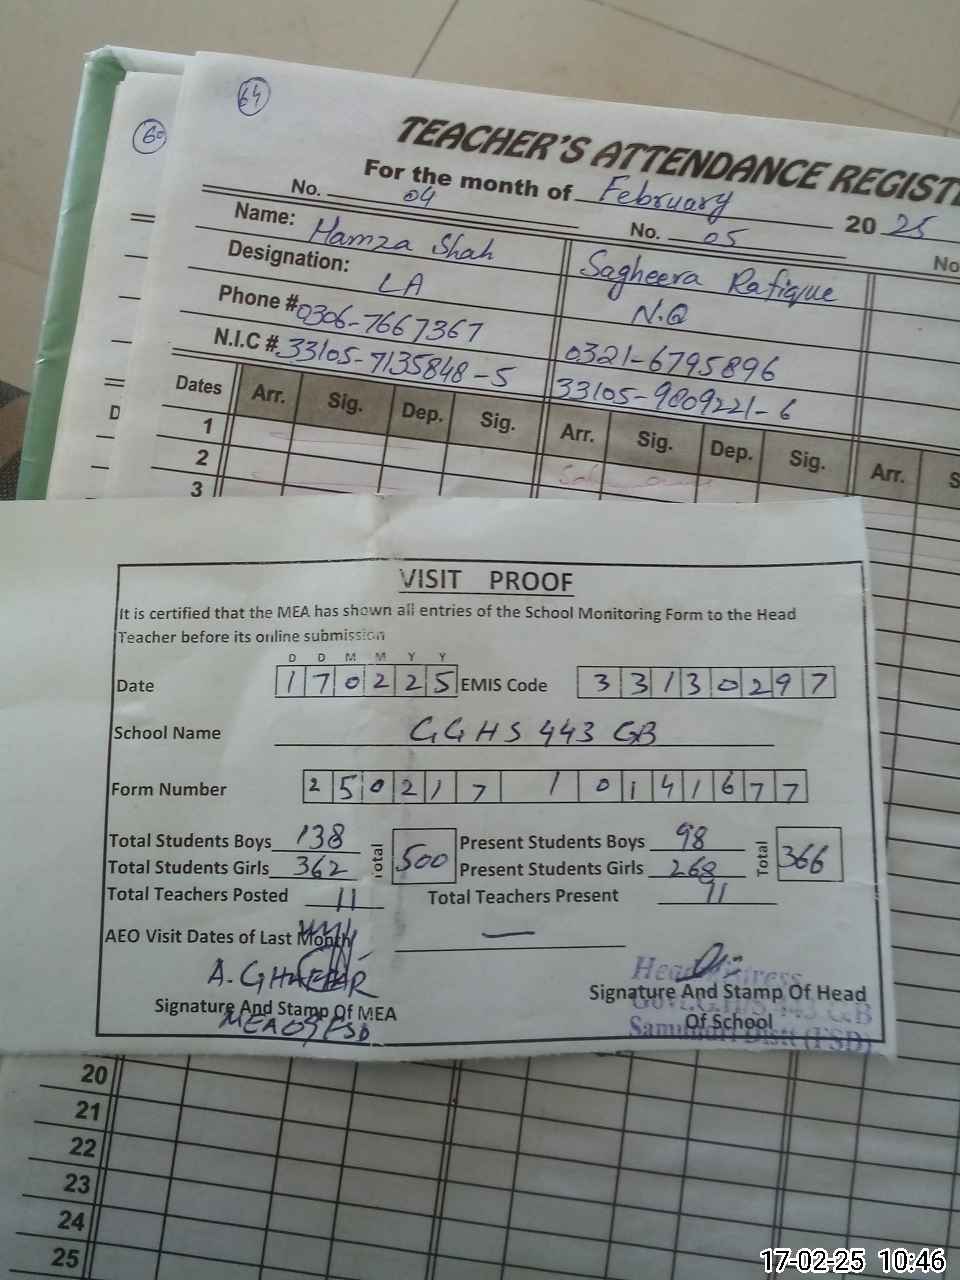 64
60
TEACHER'S ATTENDANCE REGIST
For the month of February 2025
No. 04 No. 05 No
Name: Hamza Shah Sagheera Rafique
Designation: LA N.Q
Phone # 0306-7667367 0321-6795896
N.I.C # 33105-7135848-5 33105-9809221-6
Dates Arr. Sig. Dep. Sig. Arr. Sig. Dep. Sig. Arr. S
1
2
3
D
VISIT PROOF
It is certified that the MEA has shown all entries of the School Monitoring Form to the Head
Teacher before its online submission
D D M M Y Y
Date 170225 EMIS Code 33130297
School Name GGHS 443 GB
Form Number 250217 10141677
Total Students Boys 138 Total 500 Present Students Boys 98 Total 366
Total Students Girls 362 Present Students Girls 268
Total Teachers Posted 11 Total Teachers Present 11
AEO Visit Dates of Last Month —
A. GHAFFAR
Signature And Stamp Of MEA
MEA 09 FSD
Headmistress
Signature And Stamp Of Head
Govt. GGHS 443 G.B
Of School
Samundri Distt (FSD)
20
21
22
23
24
25
17-02-25 10:46